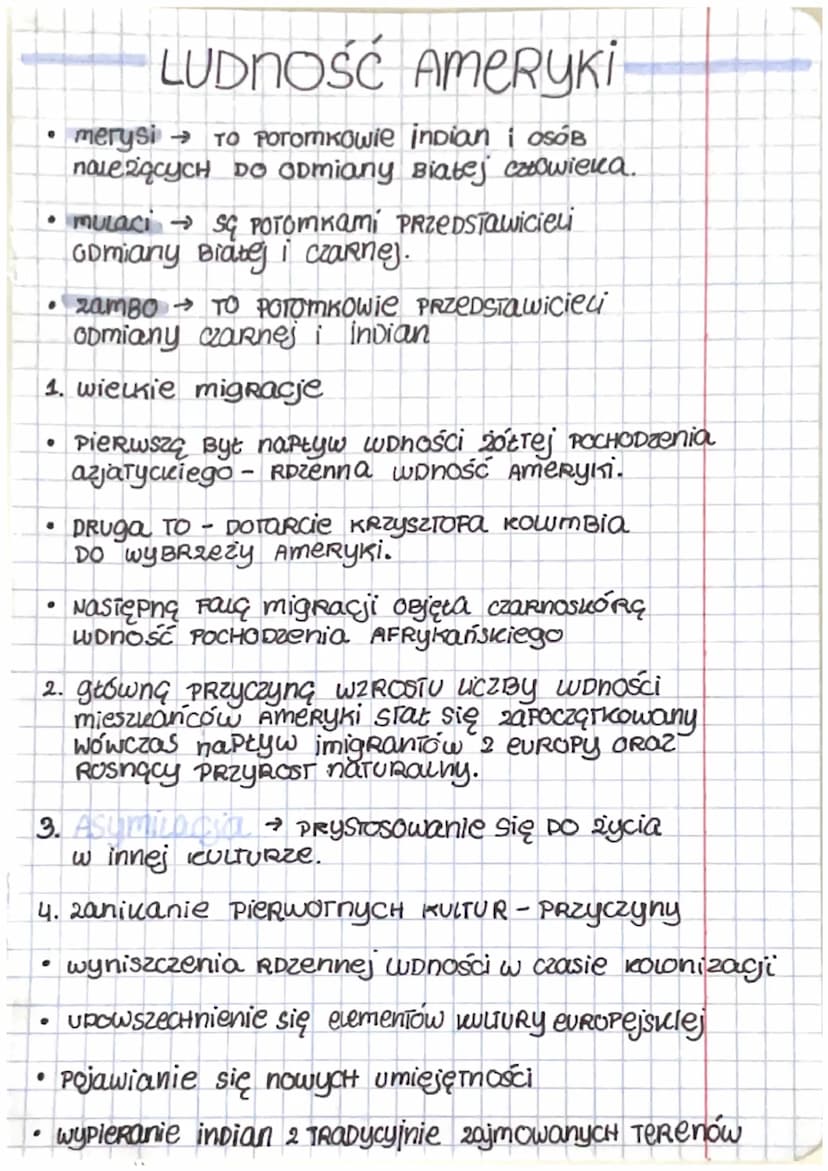 LUDNOŚĆ AMERYKI
• metysi → TO POTOMKOWIE INDIAN i OSÓB
należących DO ODMIANY Białej człowieka.
• mulaci → są POTOMKAMI PRZEDSTAWICIELI
ODMIANY Białej i czarnej.
• zambo → TO POTOMKOWIE PRZEDSTAWICIELI
ODMIANY czarnej i indian
1. wielkie migracje
• Pierwszą był napływ ludności żółtej pochodzenia
azjatyckiego - Rdzenna ludność Ameryki.
• Druga to - dotarcie Krzysztofa Kolumbia
do wybrzeży Ameryki.
• Następną falą migracji objęta czarnoskórą
ludność pochodzenia Afrykańskiego
2. główną przyczyną wzrostu liczby ludności
mieszkańców Ameryki stał się zapoczątkowany
wówczas napływ imigrantów z europy oraz
rosnący przyrost naturalny.
3. Asymilacja → prystosowanie się do życia
w innej kulturze.
4. zanikanie pierwotnych kultur - przyczyny
• wyniszczenia rdzennej ludności w czasie kolonizacji
• upowszechnienie się elementów kultury europejskiej
• pojawianie się nowych umiejętności
• wypieranie indian z tradycyjnie zajmowanych terenów